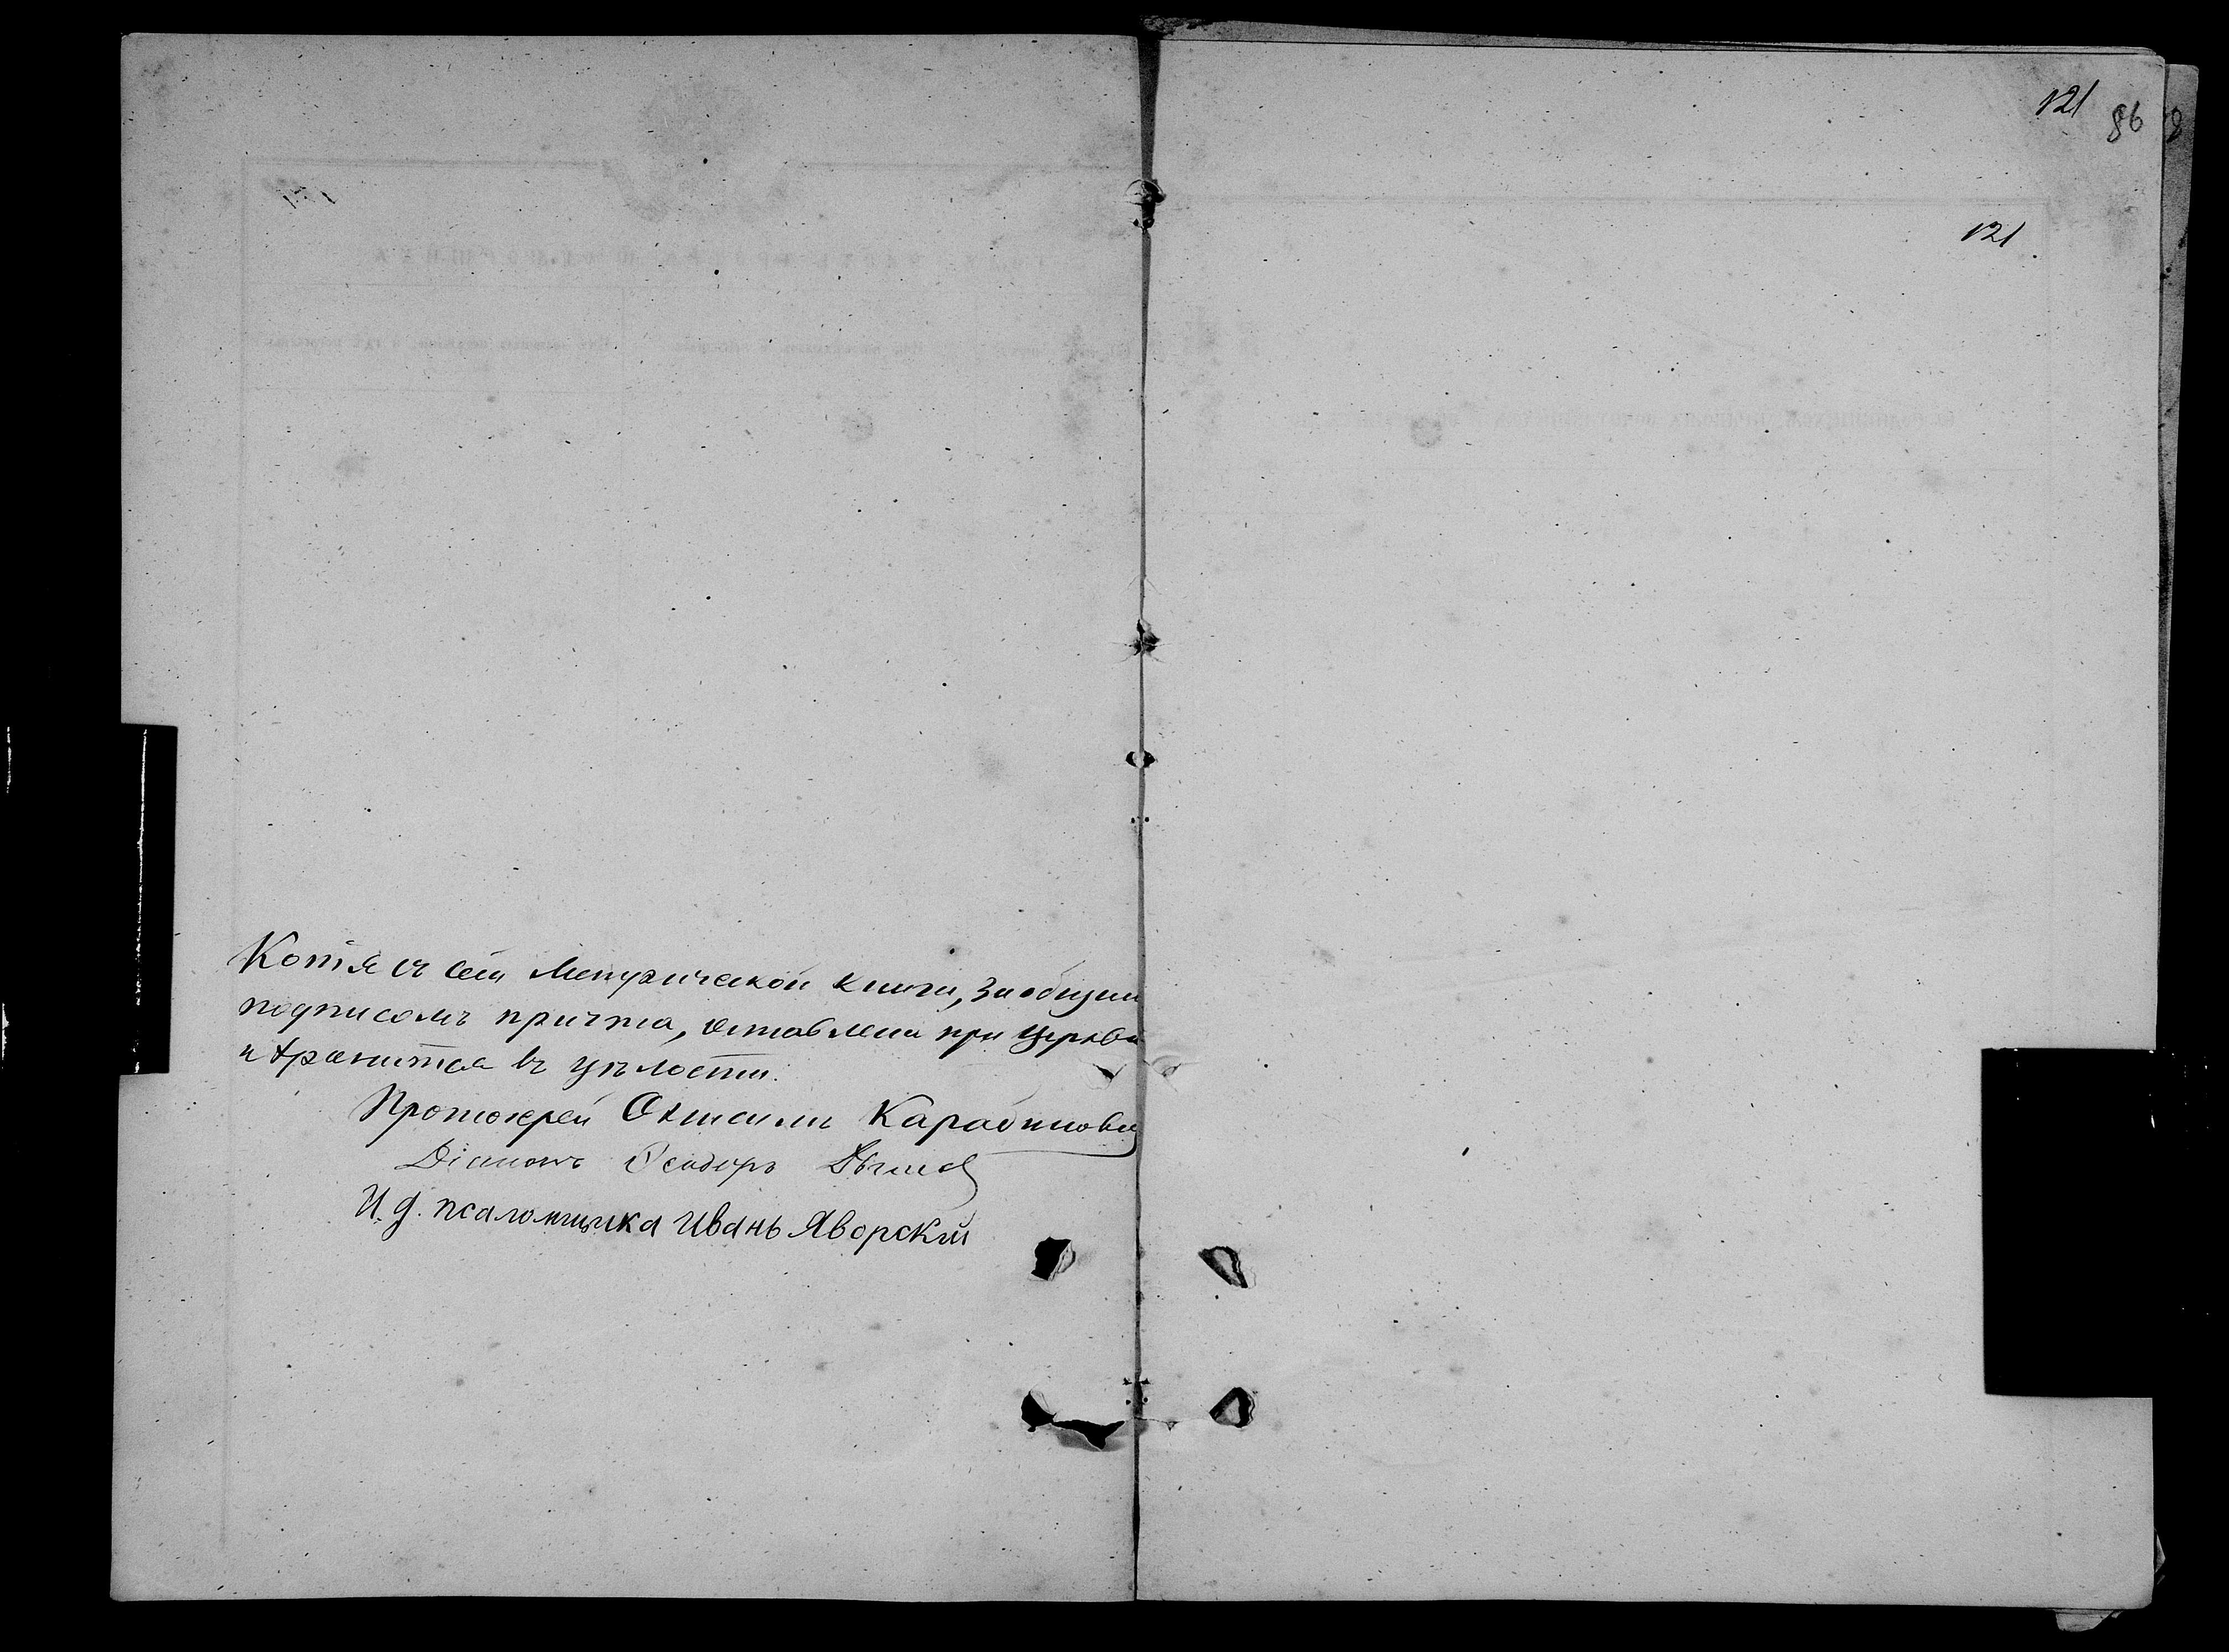 121
86
121
Копія съ сей Метрической книги, за общим
подписомъ причта, оставлена при церкви
и хранится въ цѣлости.
Протоіерей Онисимъ Карадиновъ
Діаконъ Ѳеодоръ
И. д. псаломщика Иванъ Яворскій